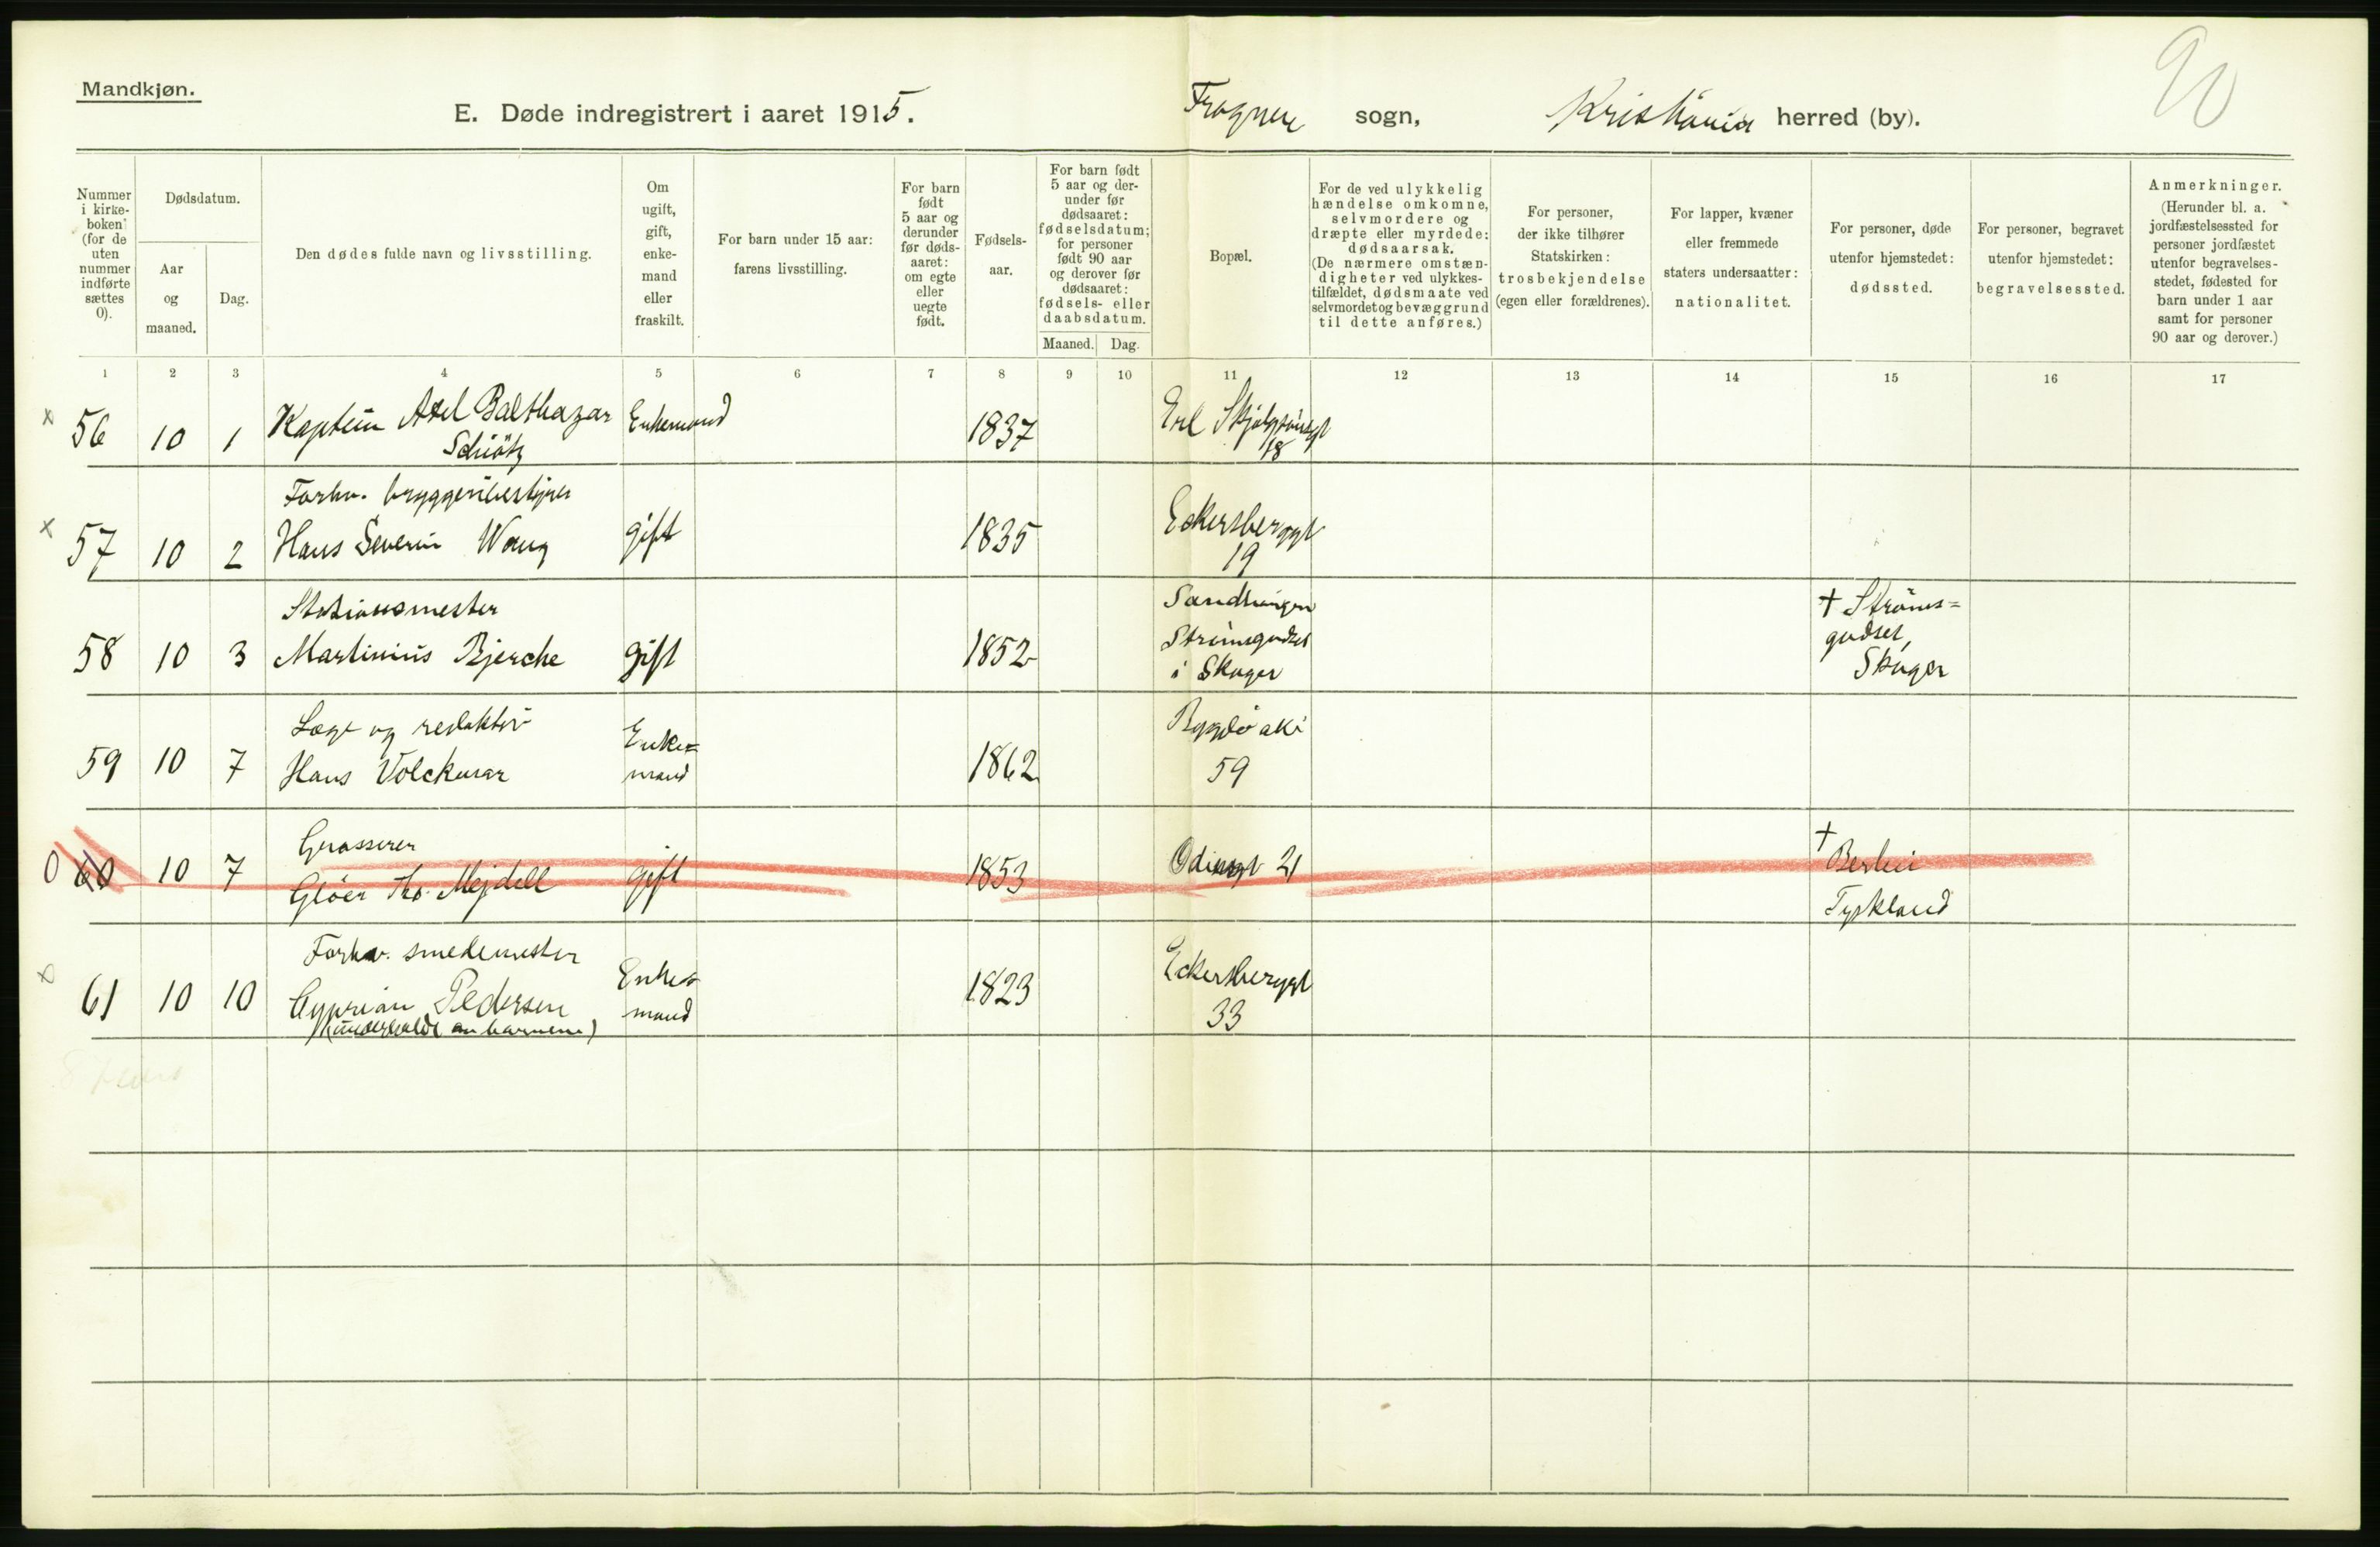 Mandkjøn.
E. Døde indregistrert i aaret 1915.
Frogner sogn, Kristiania herred (by).
90
Nummer i kirke-boken (for de uten nummer indførte sættes 0).
Dødsdatum.
Aar og maaned.
Dag.
Den dødes fulde navn og livsstilling.
Om ugift, gift, enke-mand eller fraskilt.
For barn under 15 aar: farens livsstilling.
For barn født 5 aar og derunder før døds-aaret: om egte eller uegte født.
Fødsels-aar.
For barn født 5 aar og der-under før dødsaaret: fødselsdatum; for personer født 90 aar og derover før dødsaaret: fødsels- eller daabsdatum.
Maaned. Dag.
Bopæl.
For de ved ulykkelig hændelse omkomne, selvmordere og dræpte eller myrdede: dødsaarsak. (De nærmere omstæn-digheter ved ulykkes-tilfældet, dødsmaate ved selvmordet og bevæggrund til dette anføres.)
For personer, der ikke tilhører Statskirken: trosbekjendelse (egen eller forældrenes).
For lapper, kvæner eller fremmede staters undersaatter: nationalitet.
For personer, døde utenfor hjemstedet: dødssted.
For personer, begravet utenfor hjemstedet: begravelsessted.
Anmerkninger. (Herunder bl. a. jordfæstelsessted for personer jordfæstet utenfor begravelses-stedet, fødested for barn under 1 aar samt for personer 90 aar og derover.)
1 2 3 4 5 6 7 8 9 10 11 12 13 14 15 16 17
x 56 10 1 Kaptein Axel Balthazar Enkemand 1837 Erl Skjalgsønsgt
Schiötz 18
Forhv. bryggeribestyrer
x 57 10 2 Hans Severin Wang gift 1835 Eckersberggt
19
Stationsmester
58 10 3 Martinius Bjerche gift 1852
Strömsgodset
i Skoger
+ Ströms=
godset,
Skoger
Læge og redaktör
59 10 7 Hans Volckmar Enke=
mand 1862 Bygdö allé
59
Grosserer
0 60 10 7 Glöer Th. Mejdell gift 1853 Odinsgt 21
+
Berlin
Tyskland
Forhv. smedemester
x 61 10 10 Cyprian Pedersen Enke=
mand 1823 Eckersberggt
33
(underholdt av barnene)